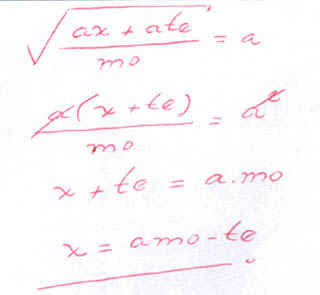 √((ax + ate)/mo) = a
a(x + te)/mo = a²
x + te = a.mo
x = amo - te.